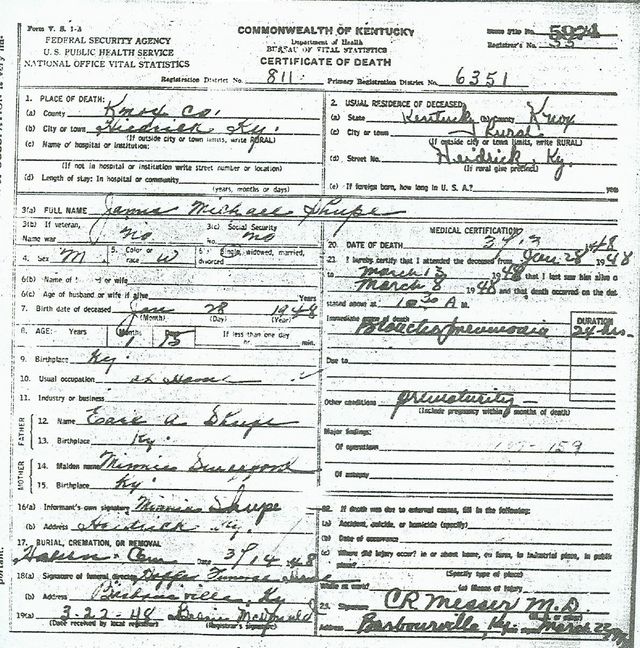 Form V. S. 1-A
FEDERAL SECURITY AGENCY
U. S. PUBLIC HEALTH SERVICE
NATIONAL OFFICE VITAL STATISTICS
COMMONWEALTH OF KENTUCKY
Department of Health
BUREAU OF VITAL STATISTICS
CERTIFICATE OF DEATH
State File No. 5924
Registrar's No. 33
Registration District No. 811
Primary Registration District No. 6351
1. PLACE OF DEATH:
(a) County Knox Co.
(b) City or town Hiedrick Ky.
(If outside city or town limits, write RURAL)
(c) Name of hospital or institution:
(If not in hospital or institution write street number or location)
(d) Length of stay: In hospital or community
(years, months or days)
2. USUAL RESIDENCE OF DECEASED:
(a) State Kentucky (b) County Knox
(c) City or town Rural
(If outside city or town limits, write RURAL)
(d) Street No. Heidrick, Ky.
(If rural give precinct)
(e) If foreign born, how long in U. S. A.? years
3(a) FULL NAME James Michael Shupe
3(b) If veteran,
Name war no
3(c) Social Security
No. no
4. Sex M
5. Color or
race W
6. Single, widowed, married,
divorced
6(b) Name of or wife
6(c) Age of husband or wife if alive Years
7. Birth date of deceased Jan 28 1948
(Month) (Day) (Year)
8. AGE: Years Months Days If less than one day
1 15 hr. min.
9. Birthplace Ky.
10. Usual occupation at Home
11. Industry or business
FATHER
12. Name Earl A Shupe
13. Birthplace Ky.
MOTHER
14. Maiden name Minnie
15. Birthplace Ky
16(a) Informant's own signature Minnie Shupe
(b) Address Heidrick Ky.
17. BURIAL, CREMATION, OR REMOVAL
Cem Date 3/14 48
18(a) Signature of funeral director Home
(b) Address Barbourville, Ky
19(a) 3-22-48
(Date received by local registrar) (Registrar's signature)
MEDICAL CERTIFICATION
20. DATE OF DEATH 3/13 1948
21. I hereby certify that I attended the deceased from Jan 28 1948
to March 13 1948 that I last saw him alive on
March 8 1948 and that death occurred on the date
stated above at 10 30 A M.
Immediate cause of death
Broncho pneumonia
DURATION
24 hrs.
Due to
Other conditions prematurity
(Include pregnancy within months of death)
Major findings:
Of operations
159
Of autopsy
22. If death was due to external causes, fill in the following:
(a) Accident, suicide, or homicide (specify)
(b) Date of occurrence
(c) Where did injury occur? in or about home, on farm, in industrial place, in public
place?
(Specify type of place)
While at work? (e) Means of injury
23. Signature CR Messer M.D.
Address Barbourville, Ky. March 22